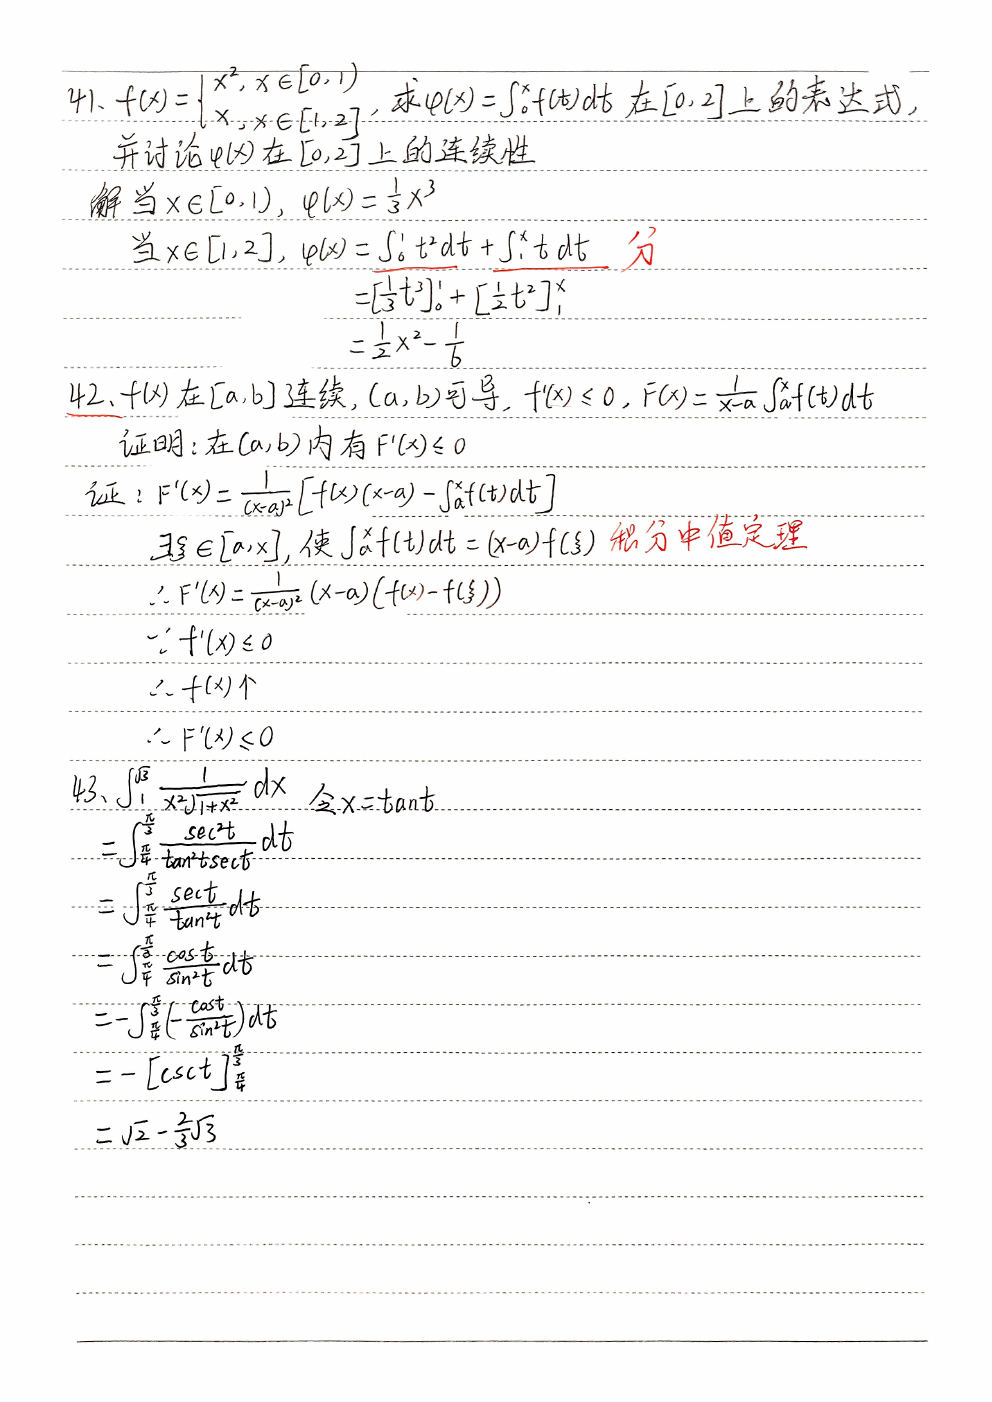 41、f(x)={x², x∈[0,1) x, x∈[1,2], 求φ(x)=∫₀ˣf(t)dt 在[0,2]上的表达式,
并讨论φ(x)在[0,2]上的连续性
解 当x∈[0,1), φ(x)=1/3 x³
当x∈[1,2], φ(x)=∫₀¹t²dt+∫₁ˣt dt 分
=[1/3 t³]₀¹+[1/2 t²]₁ˣ
=1/2 x²-1/6
42、f(x)在[a,b]连续, (a,b)可导, f'(x)≤0, F(x)=1/(x-a) ∫ₐˣf(t)dt
证明:在(a,b)内有F'(x)≤0
证: F'(x)=1/(x-a)² [f(x)(x-a)-∫ₐˣf(t)dt]
∃ξ∈[a,x], 使∫ₐˣf(t)dt=(x-a)f(ξ) 积分中值定理
∴F'(x)=1/(x-a)² (x-a)(f(x)-f(ξ))
∵f'(x)≤0
∴f(x)个
∴F'(x)≤0
43、∫₁^√3 1/(x²√(1+x²)) dx 令x=tant
=∫_{π/4}^{π/3} sec²t/(tan²tsect) dt
=∫_{π/4}^{π/3} sect/tan²t dt
=∫_{π/4}^{π/3} cost/sin²t dt
=-∫_{π/4}^{π/3}(-cost/sin²t)dt
=-[csct]_{π/4}^{π/3}
=√2-2/3√3